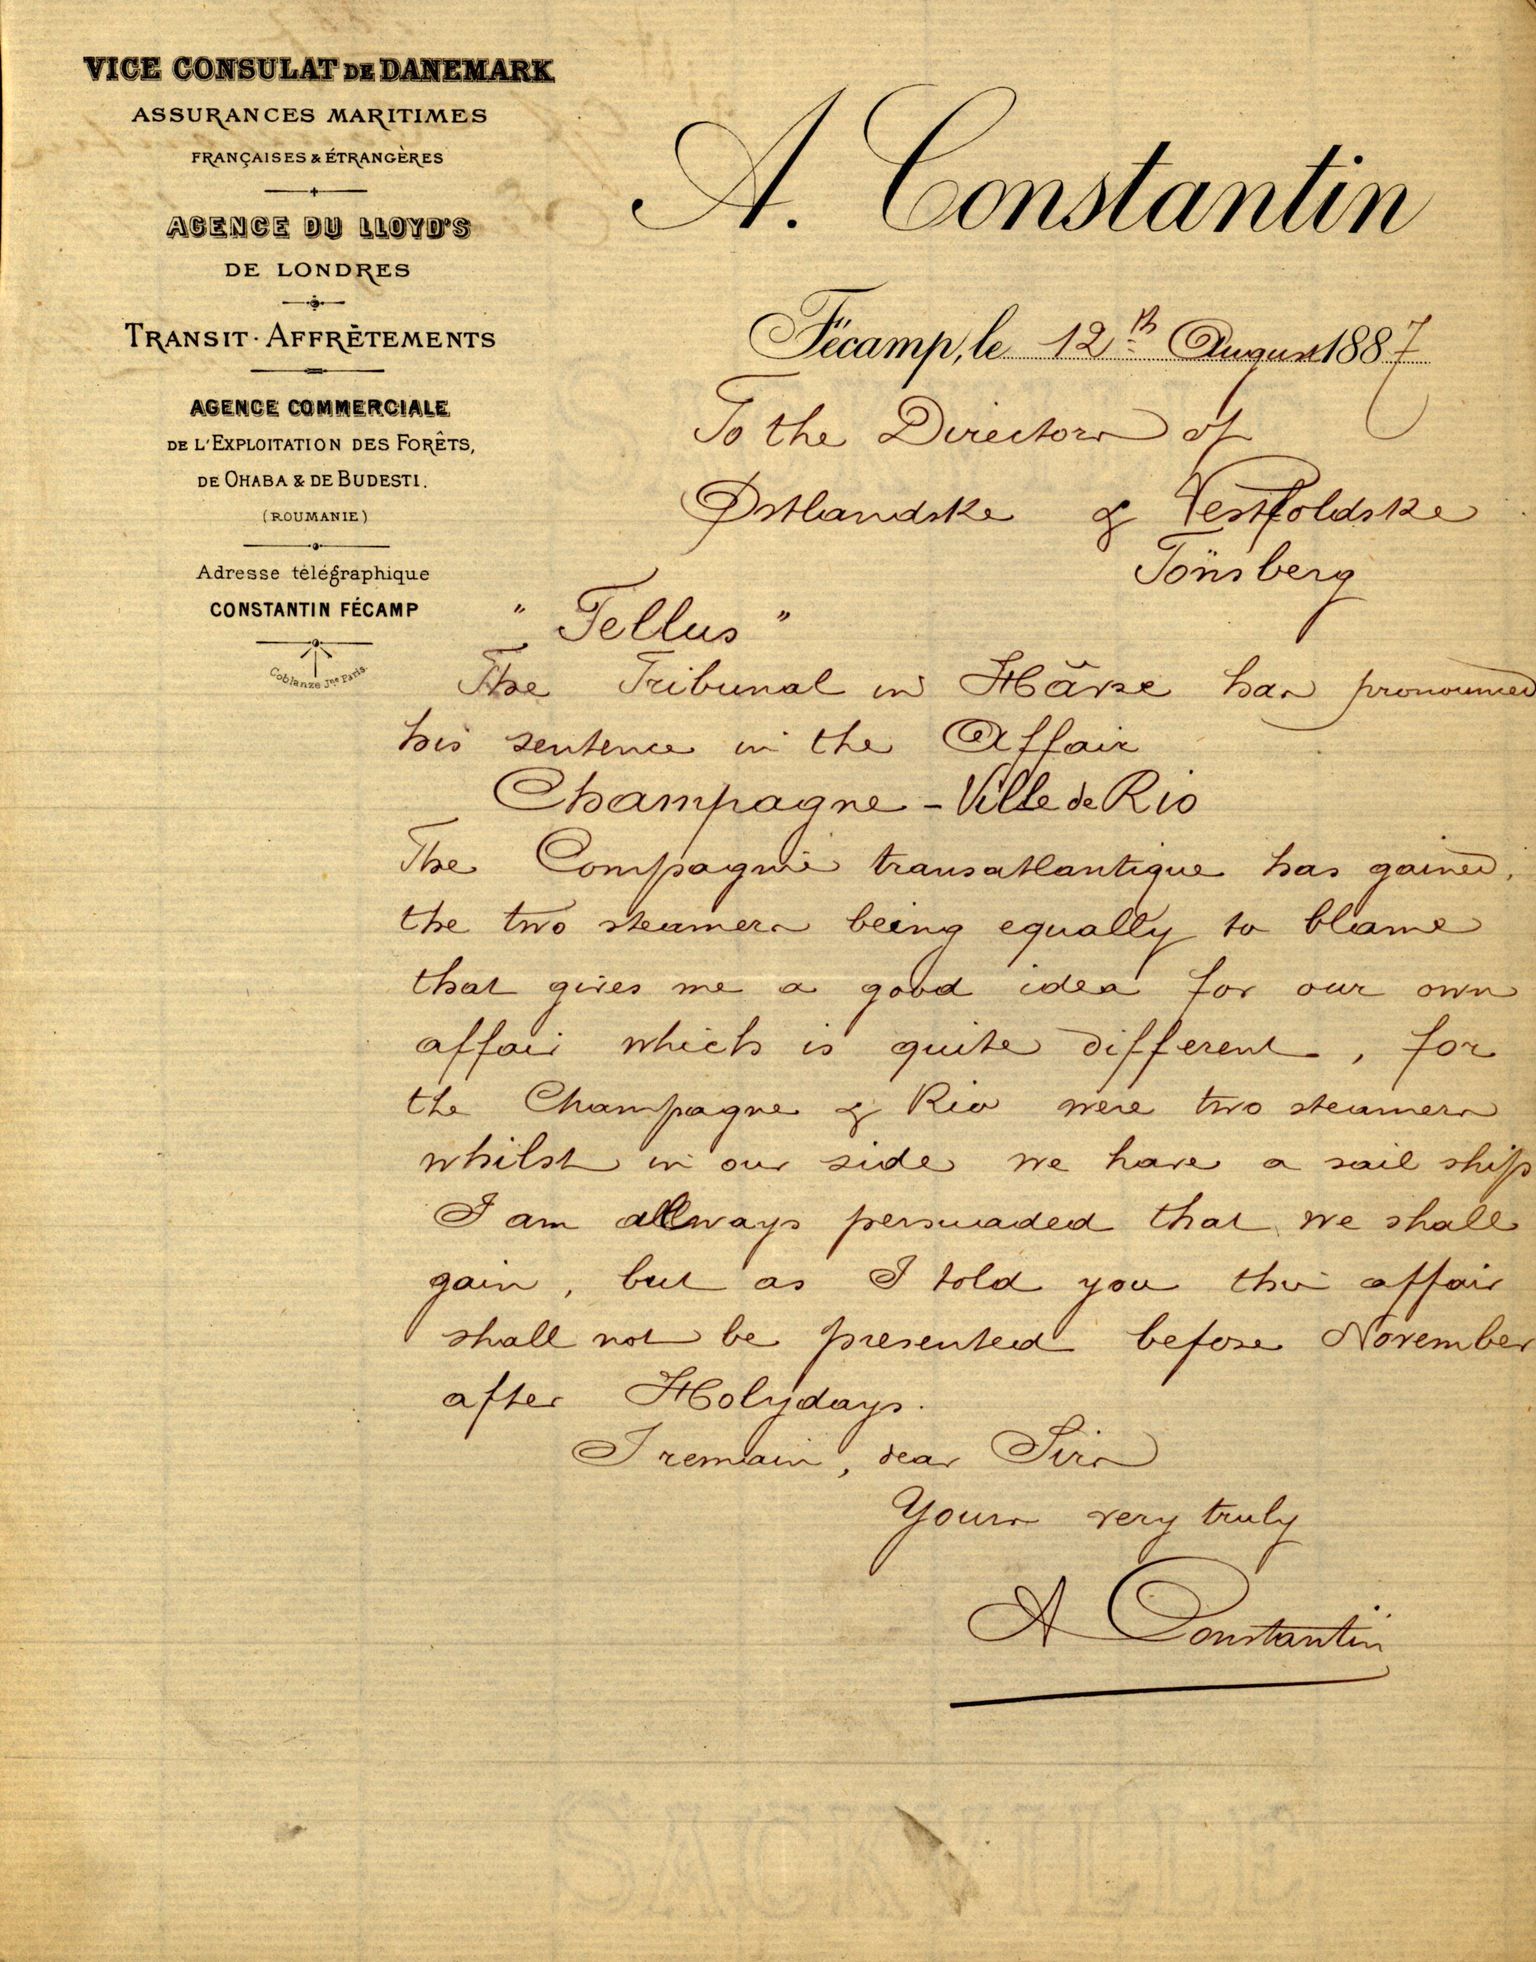 VICE CONSULAT DE DANEMARK
ASSURANCES MARITIMES
FRANÇAISES & ÉTRANGÈRES
AGENCE DU LLOYD'S
DE LONDRES
TRANSIT - AFFRÈTEMENTS
AGENCE COMMERCIALE
DE L'EXPLOITATION DES FORÊTS,
DE OHABA & DE BUDESTI.
(ROUMANIE)
Adresse télégraphique
CONSTANTIN FÉCAMP
Coblanze Jne Paris.
A. Constantin
Fécamp, le 12th August 1887
To the Directors of
Østlandske & Vestfoldske
Tönsberg
" Tellus "
The Tribunal in Hâvre has pronounced
his sentence in the Affair
Champagne - Ville de Rio
The Compagnie transatlantique has gained,
the two steamers being equally to blame
that gives me a good idea for our own
affair which is quite different, for
the Champagne & Rio were two steamers
whilst in our side we have a sail ship
I am allways persuaded that we shall
gain, but as I told you the affair
shall not be presented before November
after Holydays.
I remain, dear Sirs
Yours very truly
A Constantin